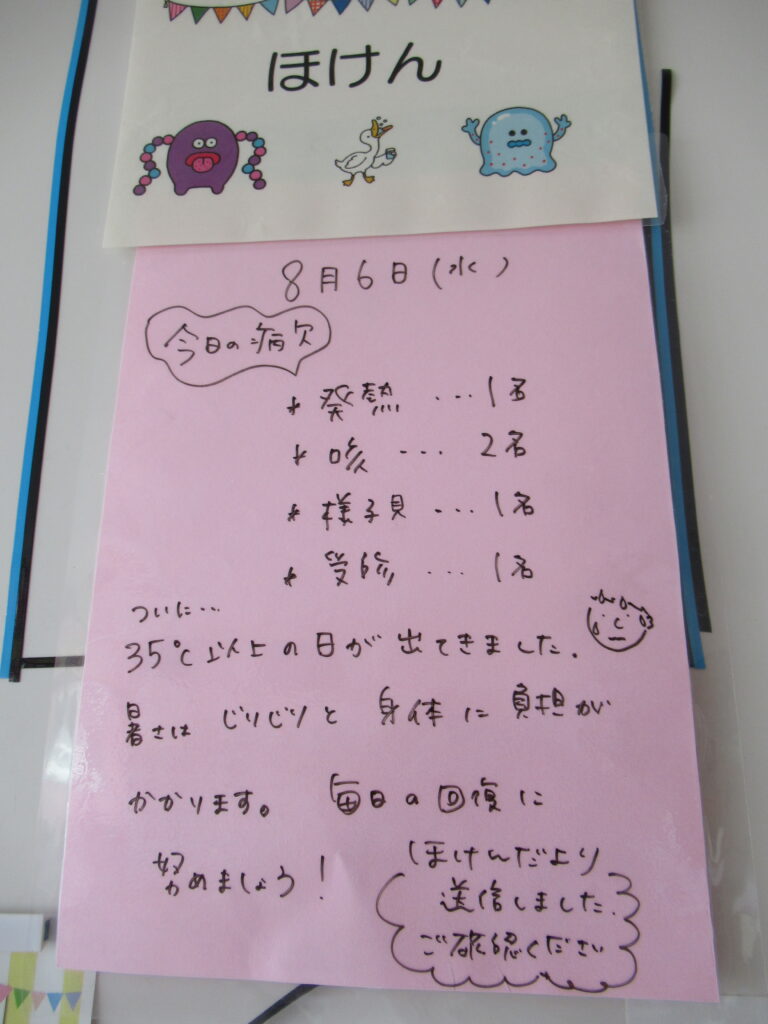 ほけん
8月6日(水)
今日の病欠
* 発熱 ... 1名
* 咳 ... 2名
* 様子見 ... 1名
* 受診 ... 1名
ついに...
35℃以上の日が出てきました.
暑さは じりじりと 身体に 負担が
かかります。 毎日の回復に
努めましょう!
ほけんだより
送信しました.
ご確認ください